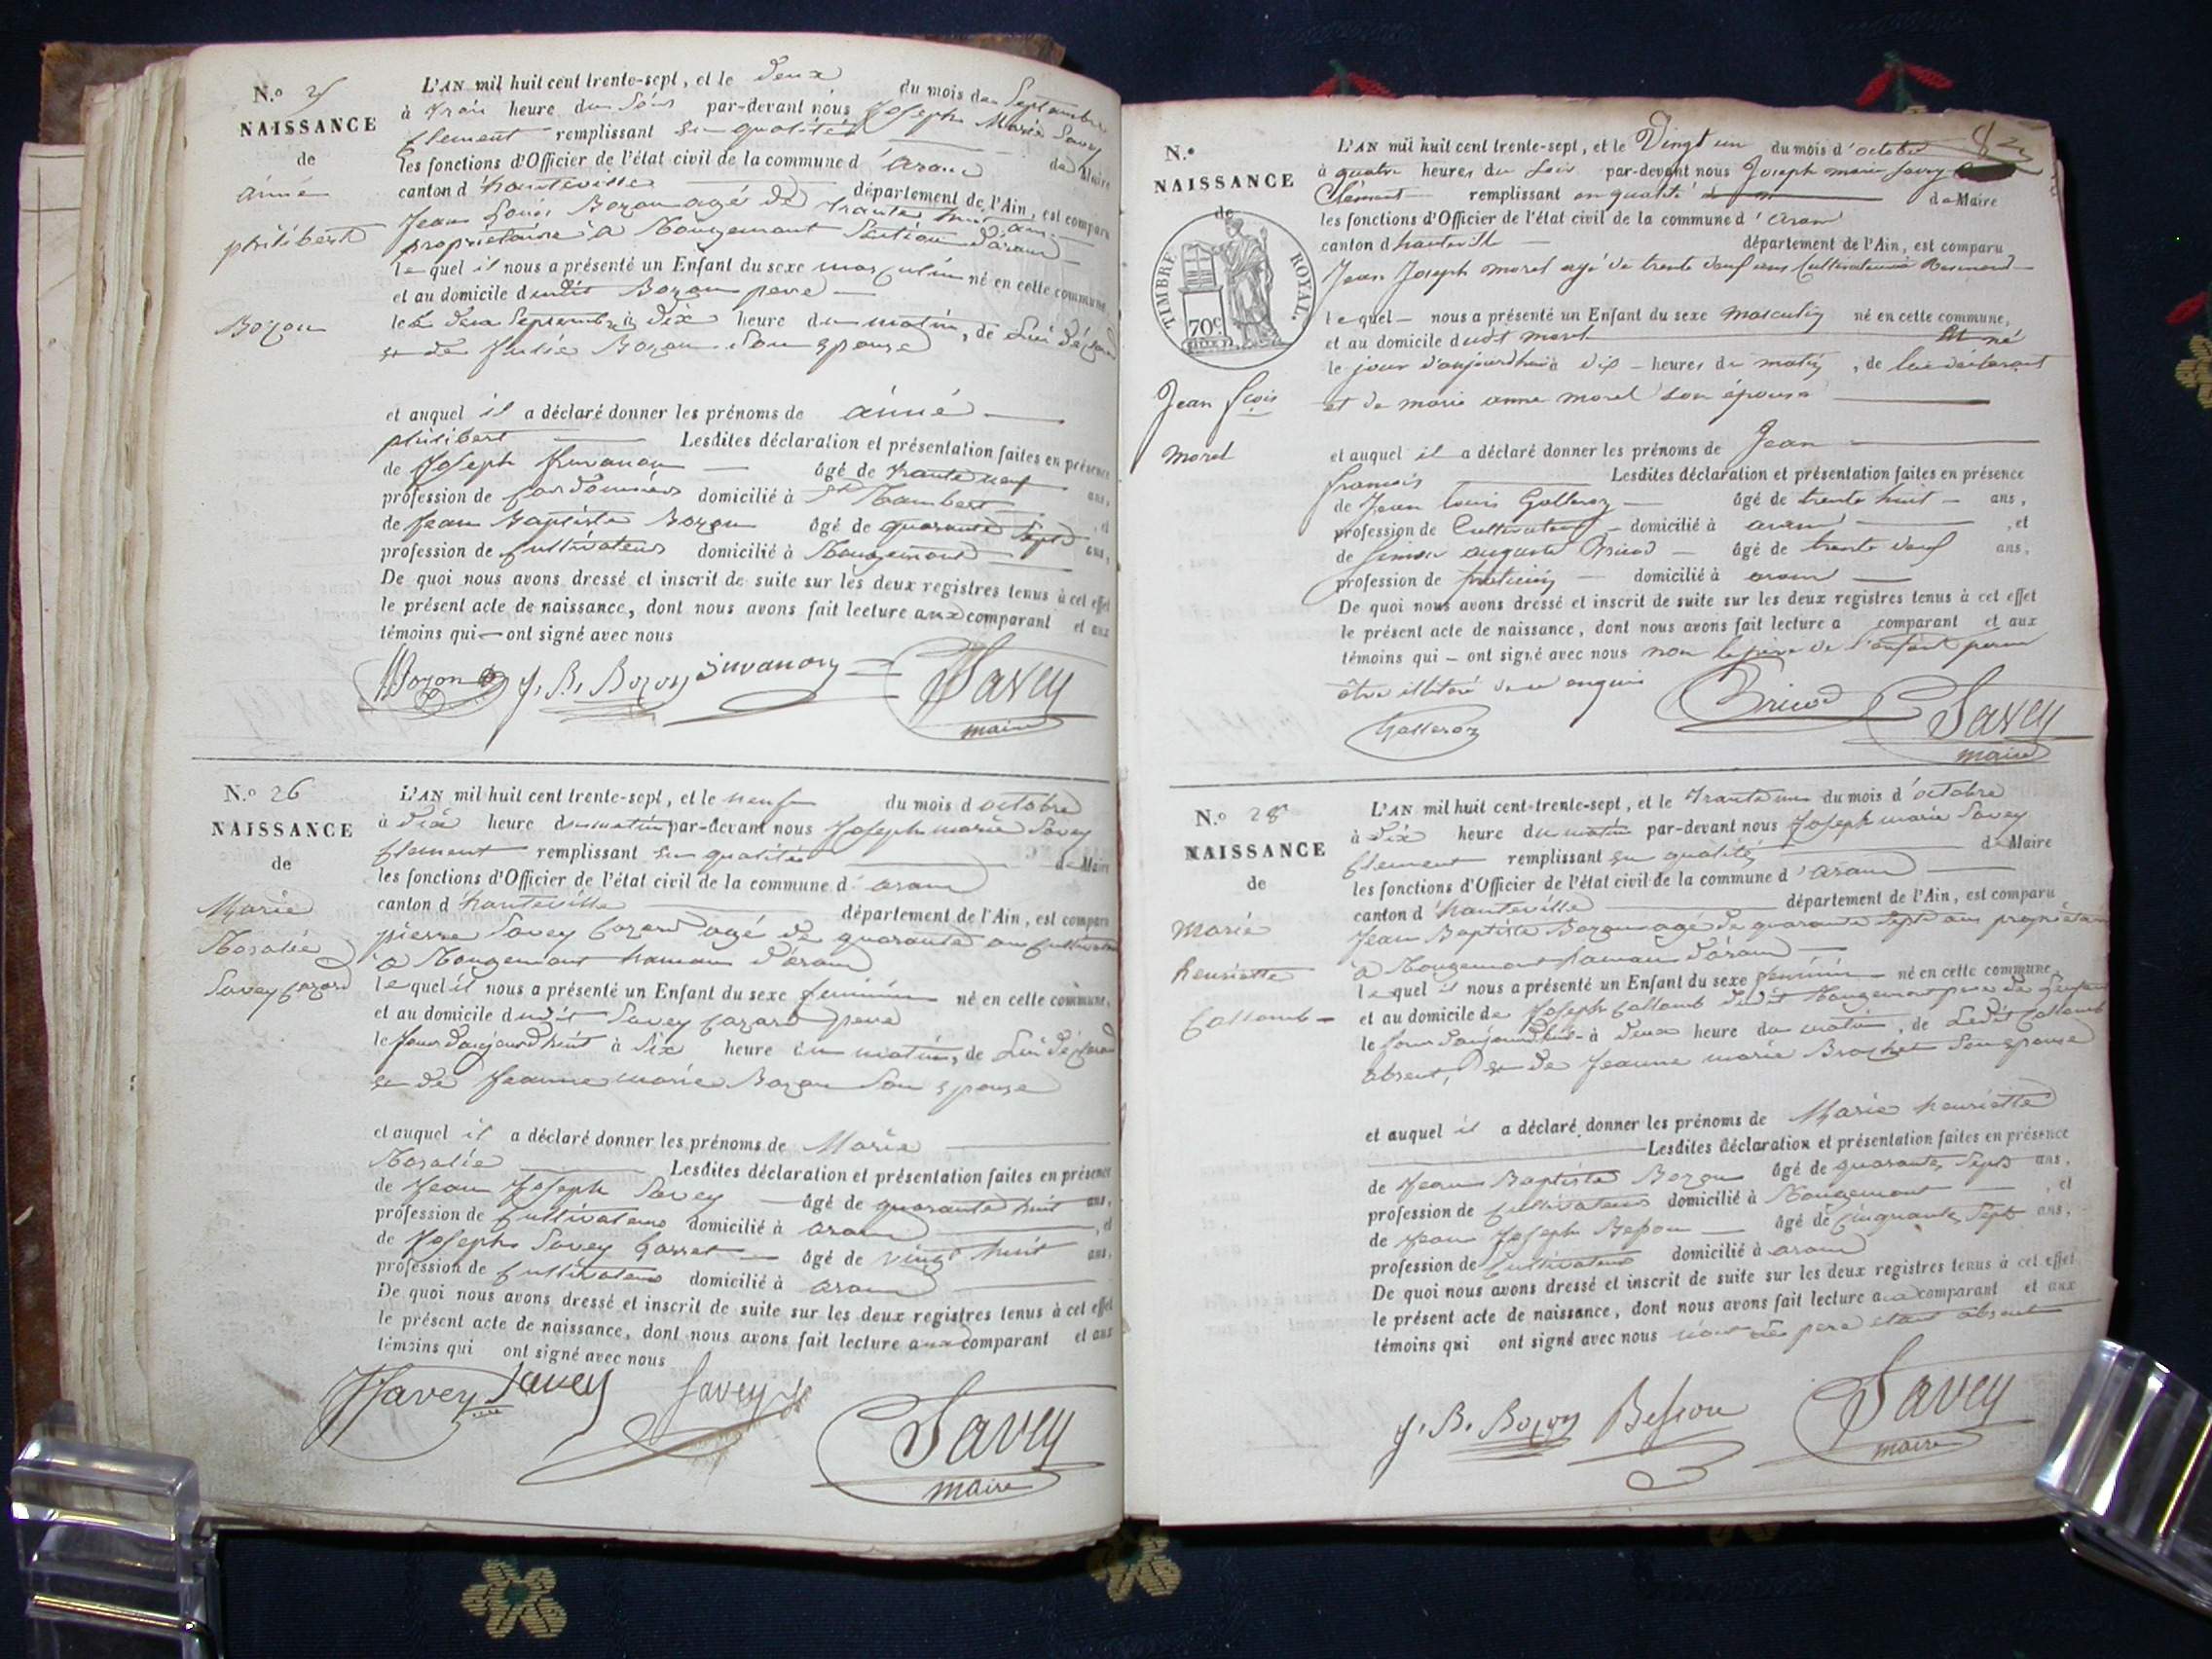 N.º 25
NAISSANCE
de
aimé
philibert
Bozon
L'AN mil huit cent trente-sept, et le deux du mois de Septembre
à trois heure du Soir par-devant nous Joseph Marie Savey
Clement remplissant en qualité de Maire
les fonctions d'Officier de l'état civil de la commune d'aranc
canton d'hauteville département de l'Ain, est comparu
Jean Louis Bozon agé de trante huit ans
proprietaire à Rougemont Section d'aranc
lequel il nous a présenté un Enfant du sexe masculin né en cette commune
et au domicile dudit Bozon pere
le deux Septembre à dix heure du matin, de Lui déclarant
et de Julie Bozon Son epouse
et auquel il a déclaré donner les prénoms de aimé
philibert Lesdites déclaration et présentation faites en présence
de Joseph Juvanon âgé de trante neuf ans,
profession de Cordonnier domicilié à St Rambert , et
de Jean Baptiste Bozon âgé de quarante Sept ans,
profession de Cultivateur domicilié à Rougemont
De quoi nous avons dressé et inscrit de suite sur les deux registres tenus à cet effet
le présent acte de naissance, dont nous avons fait lecture aux comparant et aux
témoins qui ont signé avec nous
Bozon J. B. Bozon Juvanon Savey
maire
N.º 26
NAISSANCE
de
Marie
Rosalie
Savey Cazard
L'AN mil huit cent trente-sept, et le neuf du mois d'octobre
à dix heure du matin par-devant nous Joseph marie Savey
Clement remplissant en qualité de Maire
les fonctions d'Officier de l'état civil de la commune d'aranc
canton d'hauteville département de l'Ain, est comparu
pierre Savey Cazard agé de quarante ans Cultivateur
à Rougemont hameau d'aranc
lequel il nous a présenté un Enfant du sexe feminin né en cette commune,
et au domicile dudit Savey Cazard pere
le Jour daujourdhuit à Six heure du matin, de Lui déclarant
et de Jeanne marie Bozon Son epouse
et auquel il a déclaré donner les prénoms de Marie
Rosalie Lesdites déclaration et présentation faites en présence
de Jean Joseph Savey âgé de quarante huit ans,
profession de Cultivateur domicilié à aranc , et
de Joseph Savey Carret âgé de vingt huit ans,
profession de Cultivateur domicilié à aranc
De quoi nous avons dressé et inscrit de suite sur les deux registres tenus à cet effet
le présent acte de naissance, dont nous avons fait lecture aux comparant et aux
témoins qui ont signé avec nous
Savey Savey Savey Savey
maire
82
N.º
NAISSANCE
de
TIMBRE ROYAL.
70c
Jean fçois
Morel
L'AN mil huit cent trente-sept, et le Vingt un du mois d'octobre
à quatre heures du Soir par-devant nous Joseph marie Savey
Clément remplissant en qualité de Maire
les fonctions d'Officier de l'état civil de la commune d'aranc
canton d'hauteville département de l'Ain, est comparu
Jean Joseph morel agé de trente neuf ans Cultivateur à Resinand
lequel nous a présenté un Enfant du sexe masculin né en cette commune,
et au domicile dudit morel Et né
le jour d'aujourdhui à dix heures du matin, de lui déclarant
et de marie anne morel son épouse
et auquel il a déclaré donner les prénoms de Jean
francois Lesdites déclaration et présentation faites en présence
de Jean louis Golleroz âgé de trente huit ans,
profession de Cultivateur domicilié à aranc , et
de auguste Bricod âgé de trente neuf ans,
profession de praticien domicilié à aranc
De quoi nous avons dressé et inscrit de suite sur les deux registres tenus à cet effet
le présent acte de naissance, dont nous avons fait lecture a comparant et aux
témoins qui ont signé avec nous non le père de l'enfant pour
être illitéré de ce enquis
Golleroz Bricod Savey
maire
N.º 28
NAISSANCE
de
Marie
henriette
Collomb
L'AN mil huit cent trente-sept, et le trante un du mois d'octobre
à dix heure du matin par-devant nous Joseph marie Savey
Clement remplissant en qualité de Maire
les fonctions d'Officier de l'état civil de la commune d'aranc
canton d'hauteville département de l'Ain, est comparu
Jean Baptiste Bozon agé de quarante Sept ans proprietaire
à Rougemont hameau d'aranc
lequel il nous a présenté un Enfant du sexe feminin né en cette commune
et au domicile de Joseph Collomb dudit Rougemont pere de
le Jour daujourdhui à deux heure du matin, de Ledit Collomb
absent, et de Jeanne marie Brochet Son epouse
et auquel il a déclaré donner les prénoms de Marie henriette
Lesdites déclaration et présentation faites en présence
de Jean Baptiste Bozon âgé de quarante Sept ans,
profession de Cultivateur domicilié à Rougemont , et
de Jean Joseph Besson âgé de Cinquante Sept ans,
profession de Cultivateur domicilié à aranc
De quoi nous avons dressé et inscrit de suite sur les deux registres tenus à cet effet
le présent acte de naissance, dont nous avons fait lecture aux comparant et aux
témoins qui ont signé avec nous pere etant absent
J. B. Bozon Besson Savey
maire